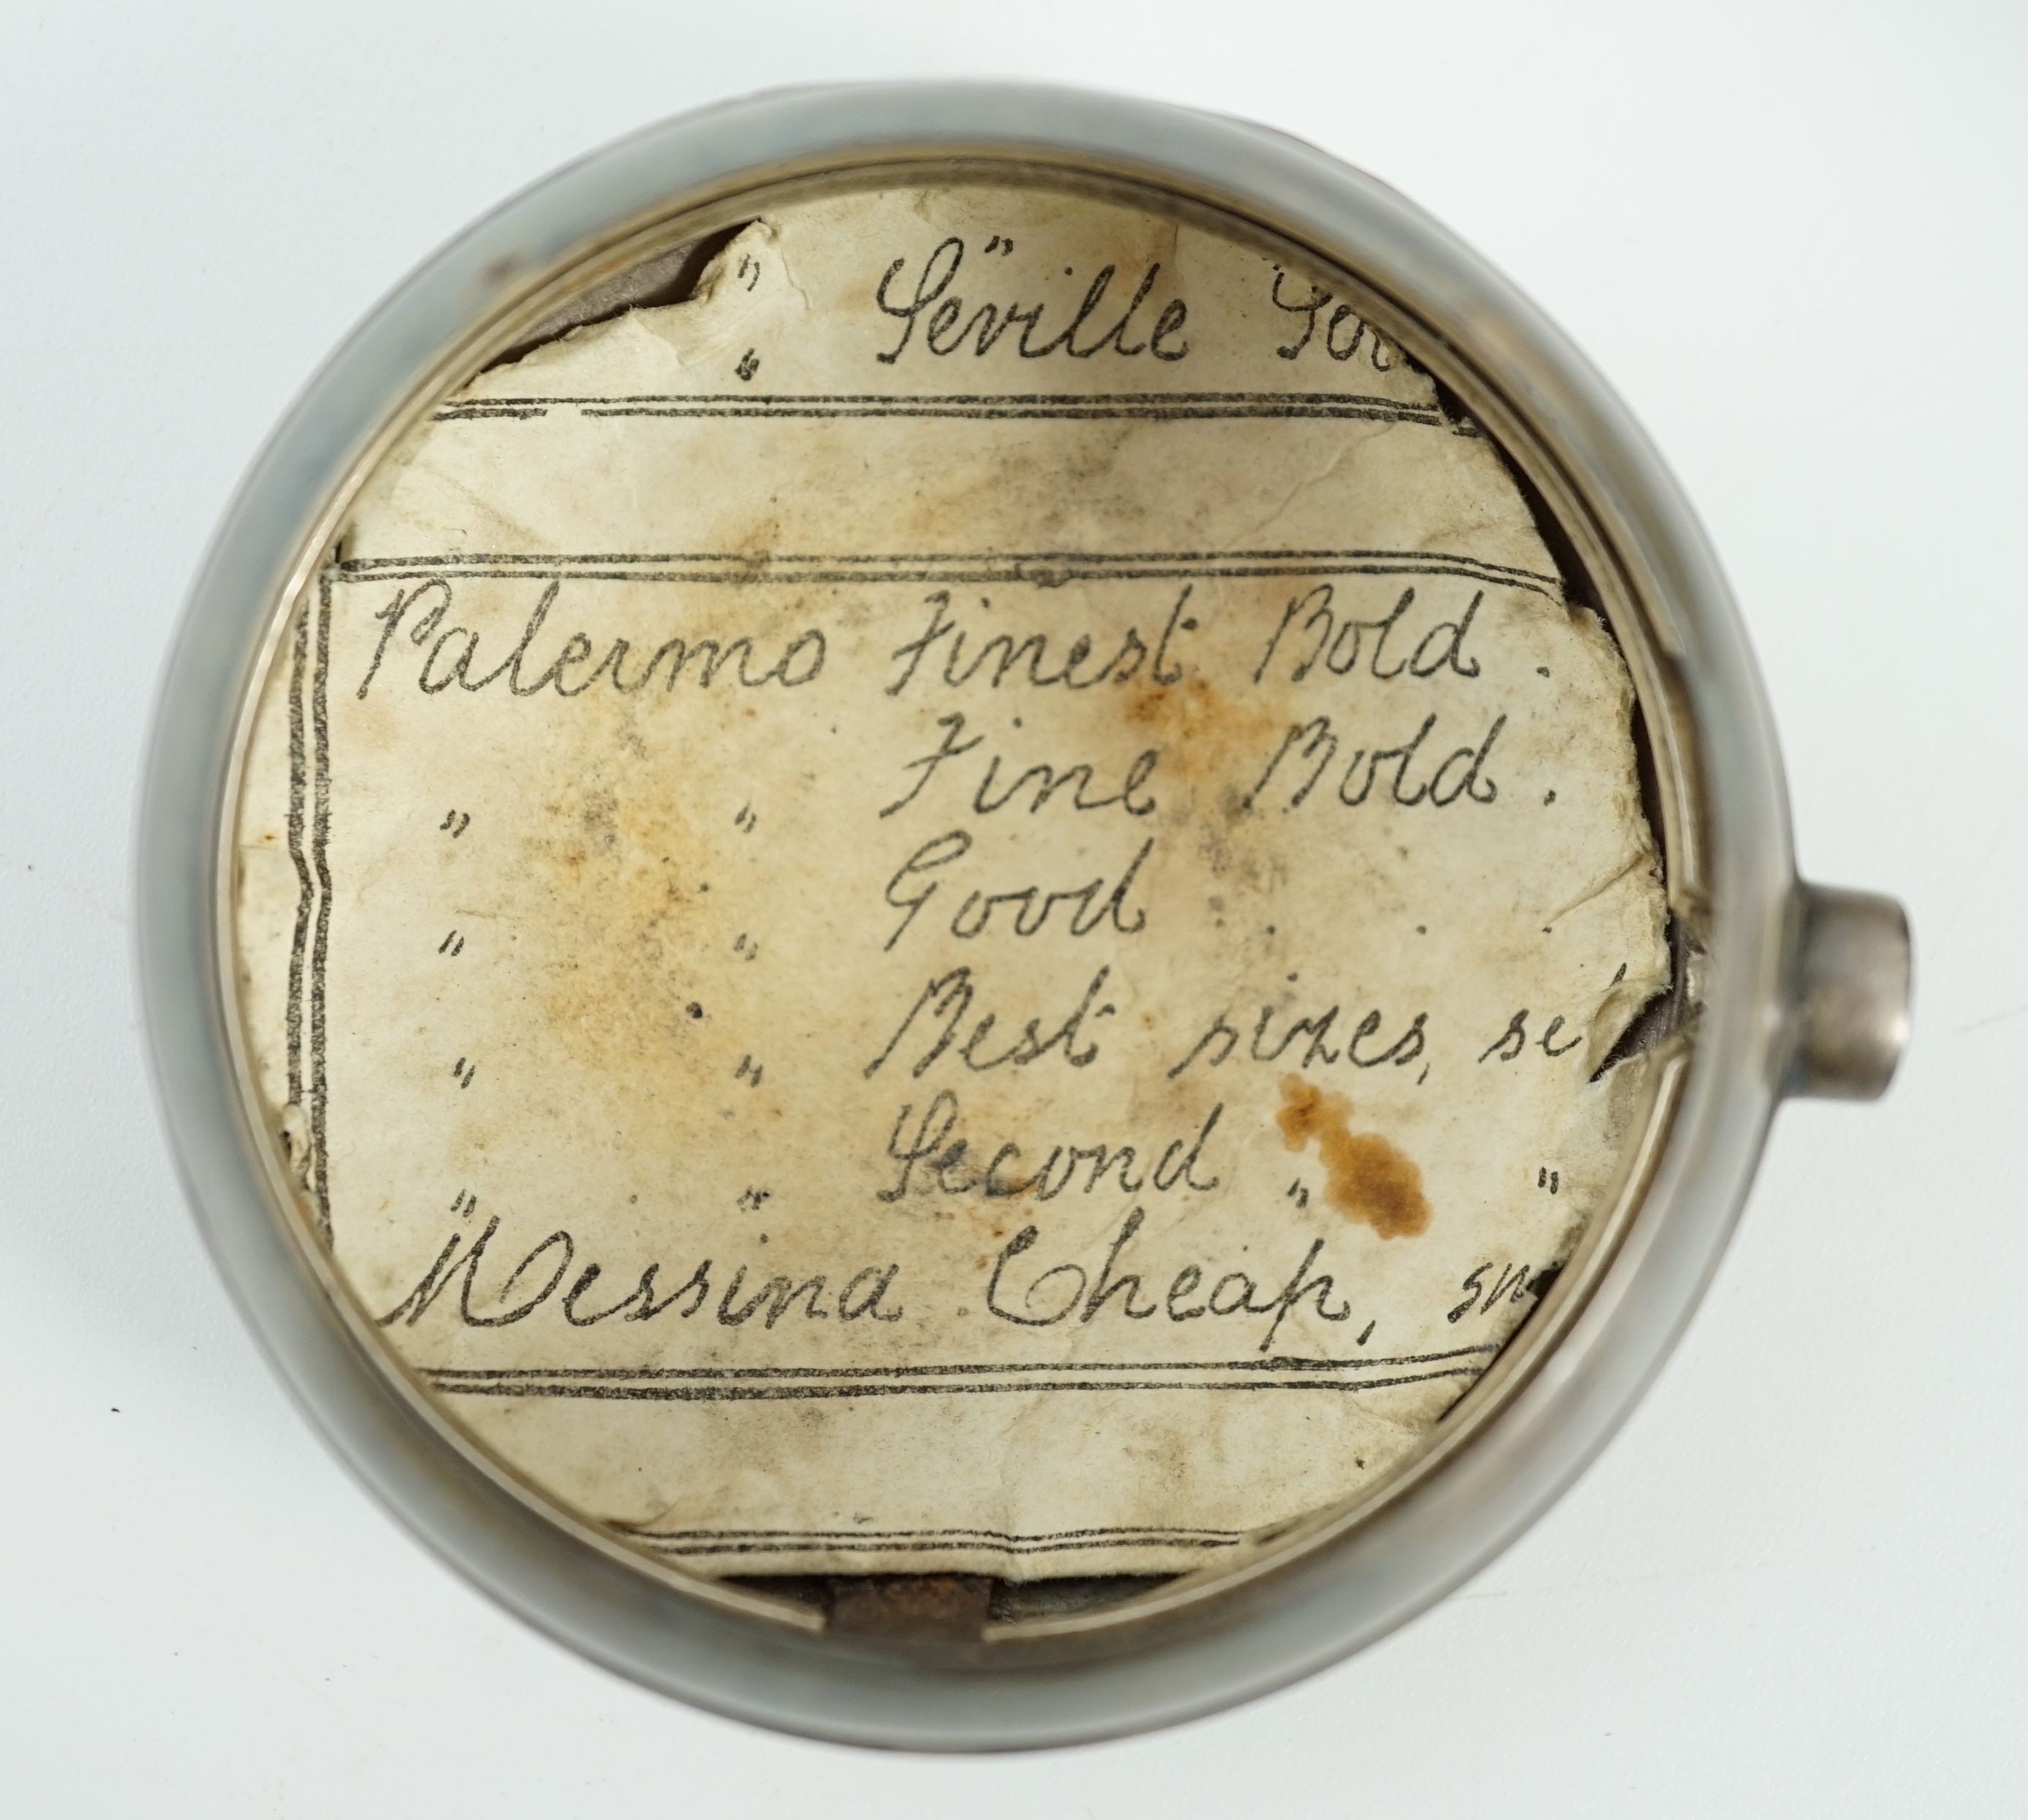 " "
" Seville
Palermo Finest Bold .
" " Fine Bold .
" " Good . . .
" " Best sizes, se
" " Second " "
Messina Cheap,